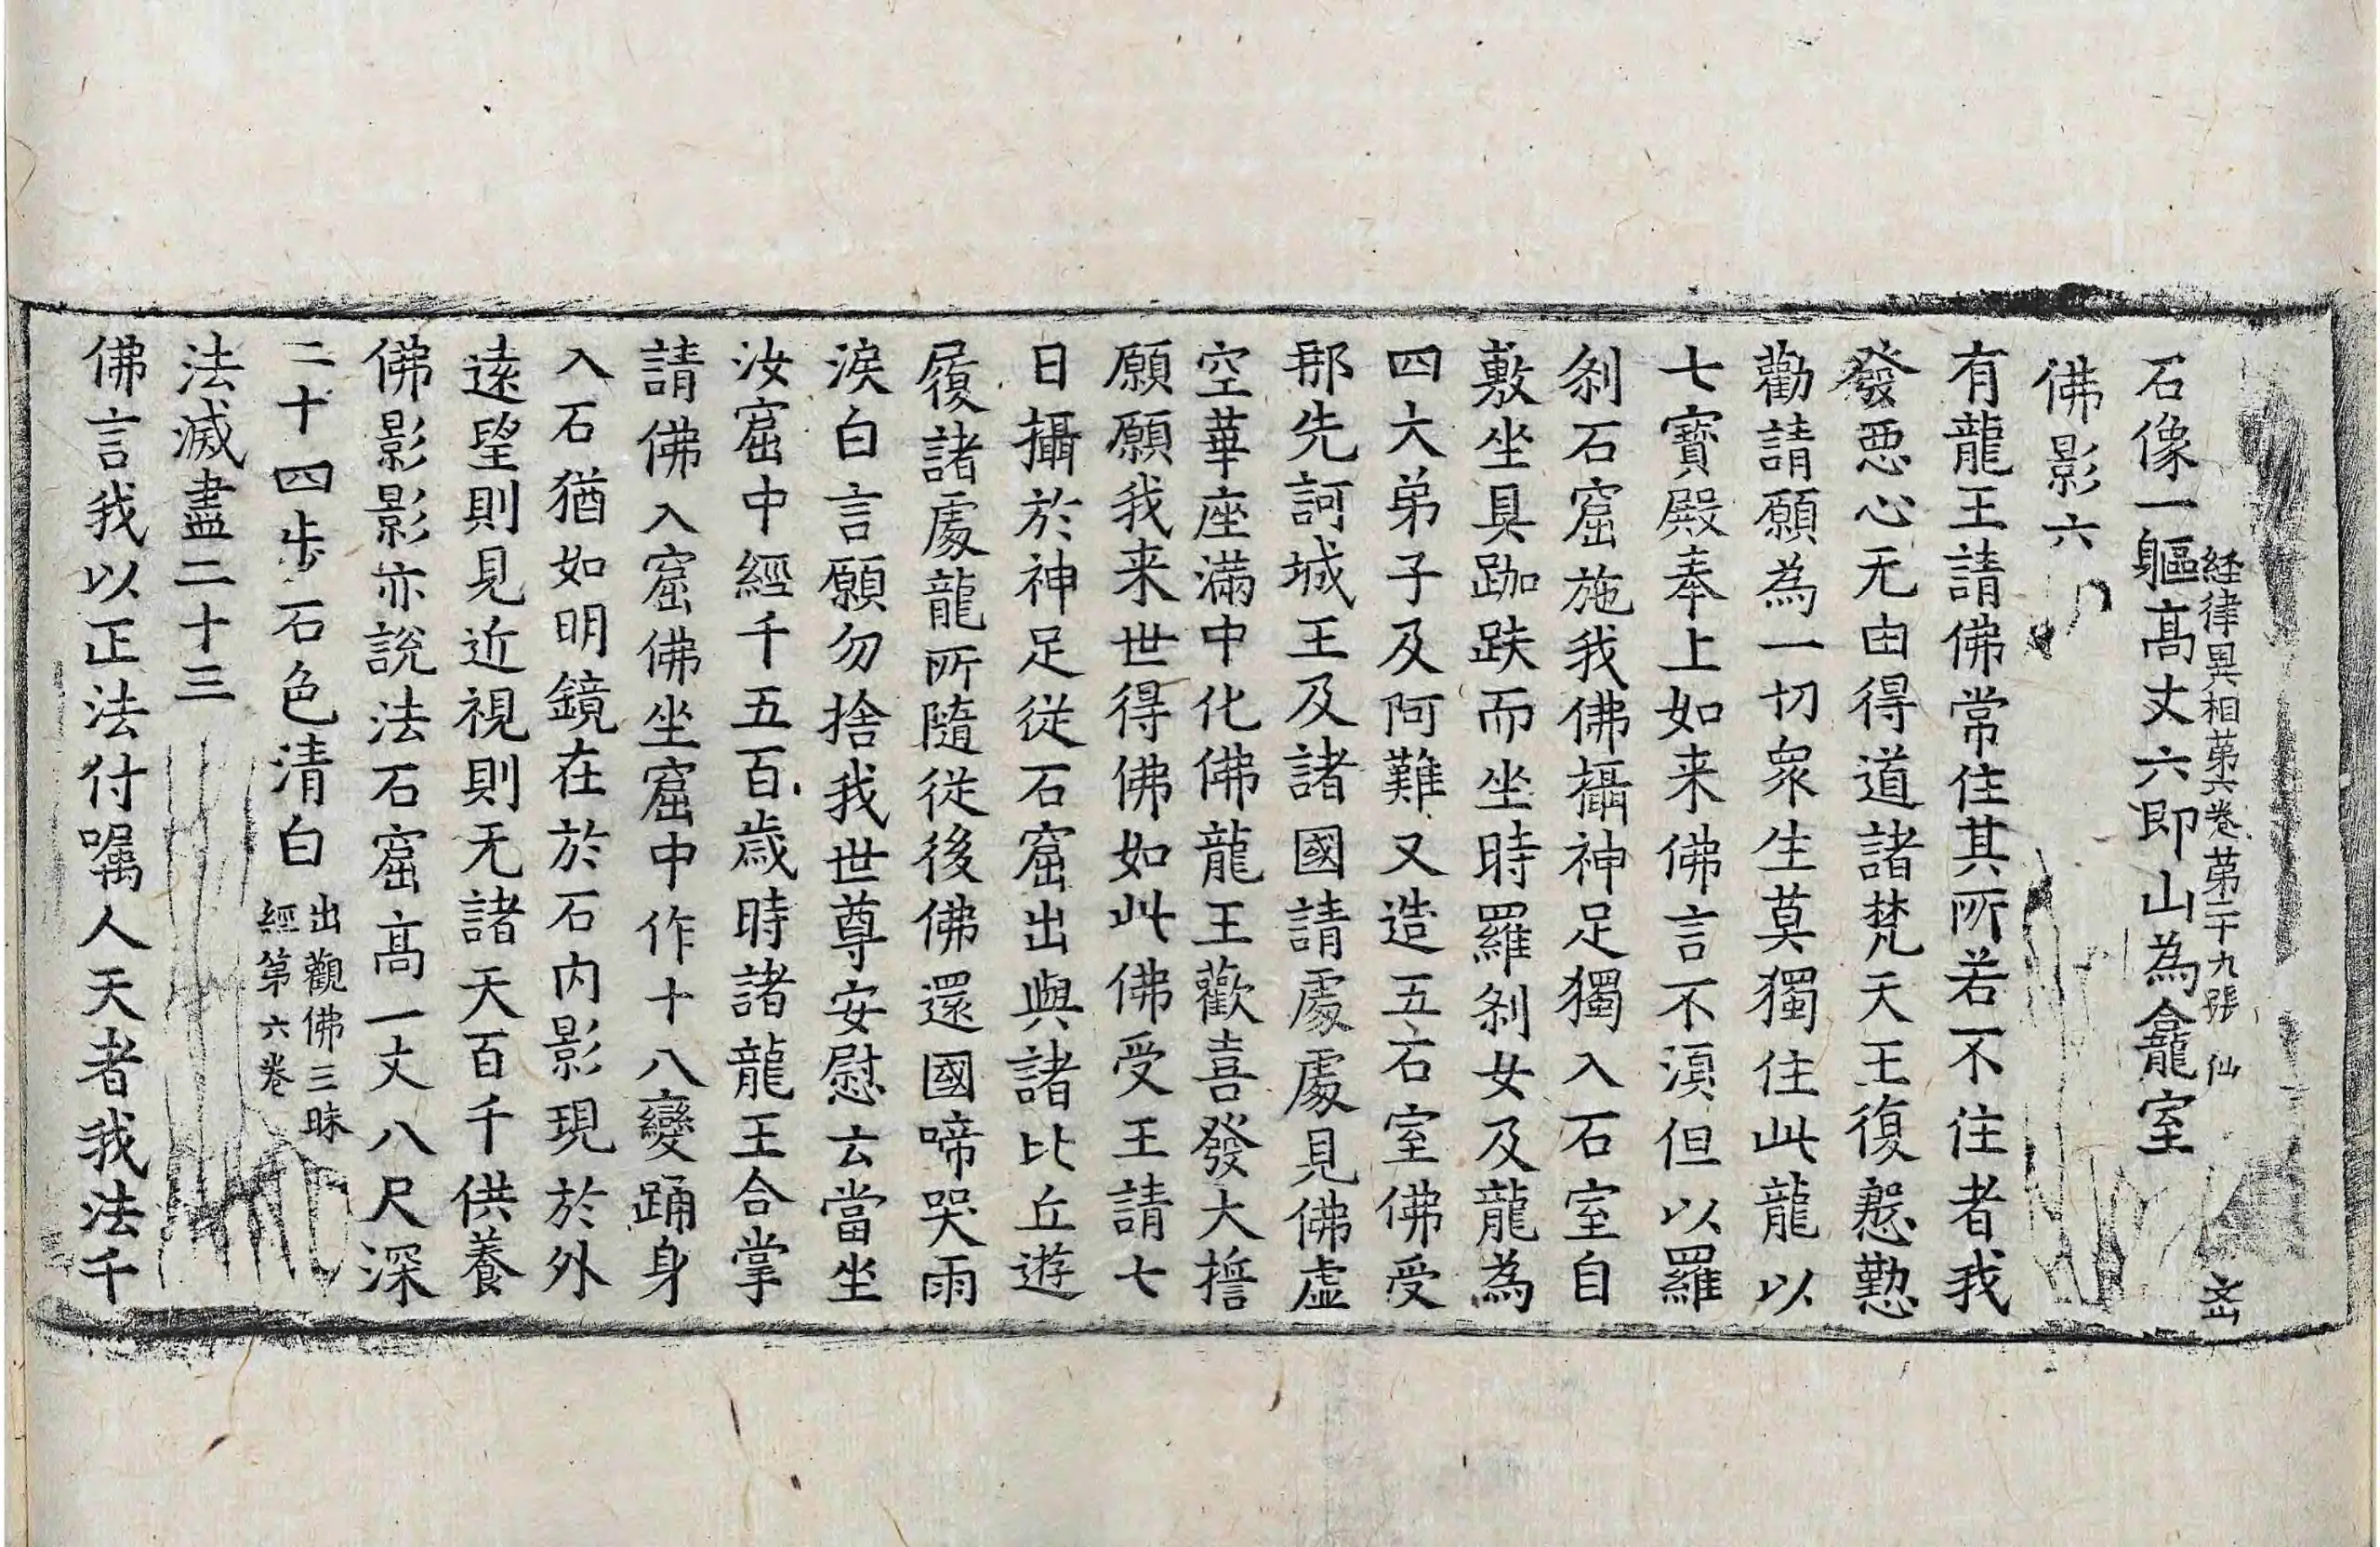 経律異相第六卷第二十九張 仙
石像一軀高丈六即山為龕室
佛影六
有龍王請佛常住其所若不住者我
發惡心无由得道諸梵天王復慇懃
勸請願為一切衆生莫獨住此龍以
七寶殿奉上如来佛言不湏但以羅
刹石窟施我佛攝神足獨入石室自
敷坐具跏趺而坐時羅刹女及龍為
四大弟子及阿難又造五石室佛受
那先訶城王及諸國請處處見佛虛
空華座滿中化佛龍王歡喜發大誓
願願我来世得佛如此佛受王請七
日攝於神足從石窟出與諸比丘遊
履諸處龍所隨從後佛還國啼哭雨
淚白言願勿捨我世尊安慰云當坐
汝窟中經千五百歲時諸龍王合掌
請佛入窟佛坐窟中作十八變踊身
入石猶如明鏡在於石内影現於外
遠望則見近視則无諸天百千供養
佛影影亦說法石窟高一丈八尺深
二十四步石色清白
出觀佛三昧
經第六卷
法滅盡二十三
佛言我以正法付囑人天者我法千